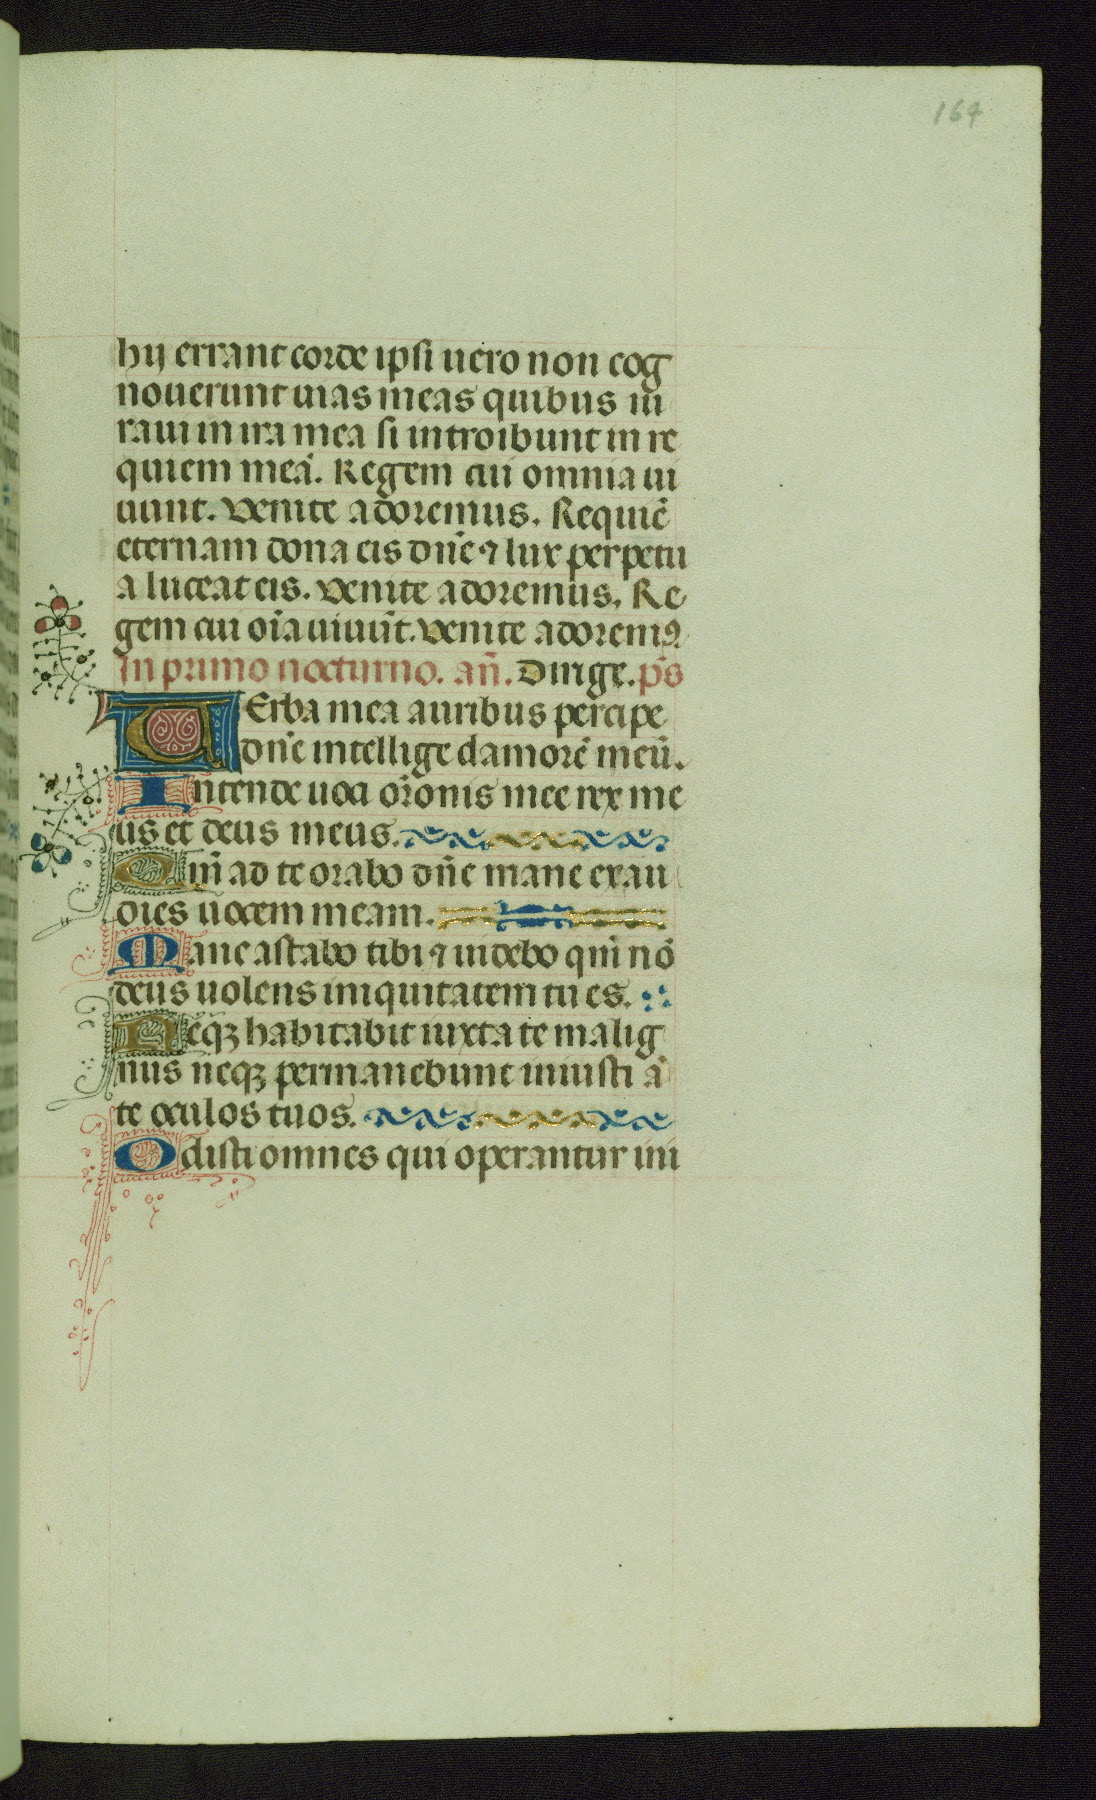 164
hij errant corde ipsi uero non cog
nouerunt uias meas quibus iu
raui in ira mea si introibunt in re
quiem meā. Regem cui omnia ui
uunt. Venite adoremus. Requiē
eternam dona eis dn̄e ⁊ lux perpetu
a luceat eis. Venite adoremus. Re
gem cui oīa uiuūt. Venite adoremꝰ.
In primo nocturno. an̄. Dirige. ps̄
VErba mea auribus percipe
dn̄e intellige clamorē meū.
Intende uoci or̄onis mee rex me
us et deus meus.
Qm̄ ad te orabo dn̄e mane exau
dies uocem meam.
Mane astabo tibi ⁊ uidebo qm̄ nō
deus uolens iniquitatem tu es.
Neqꝫ habitabit iuxta te malig
nus neqꝫ permanebunt iniusti ā
te oculos tuos.
Odisti omnes qui operantur ini